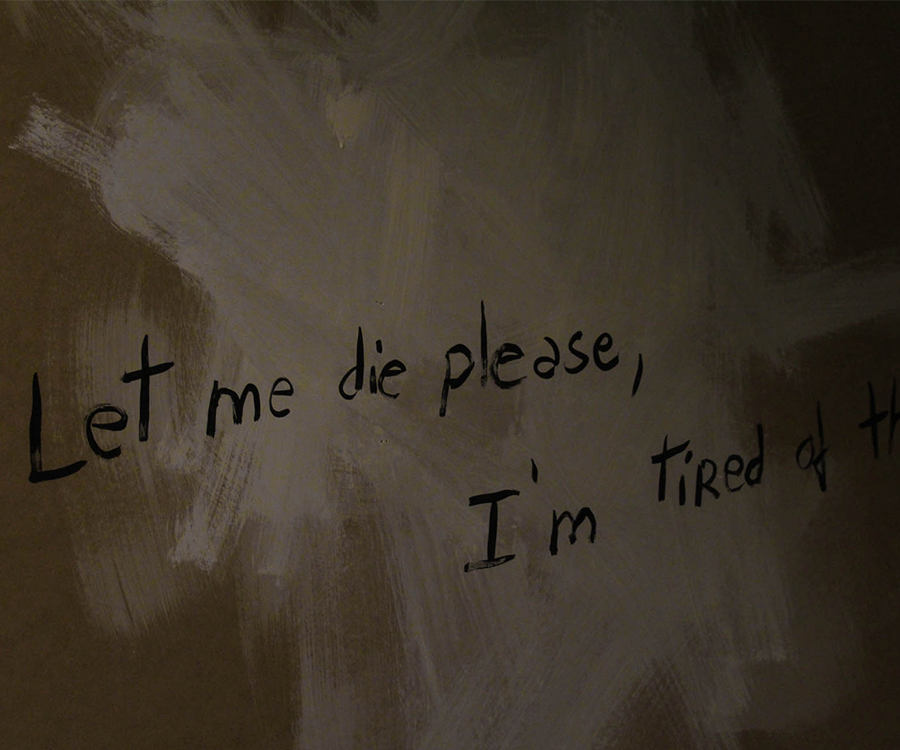 Let me die please,
I'm tired of